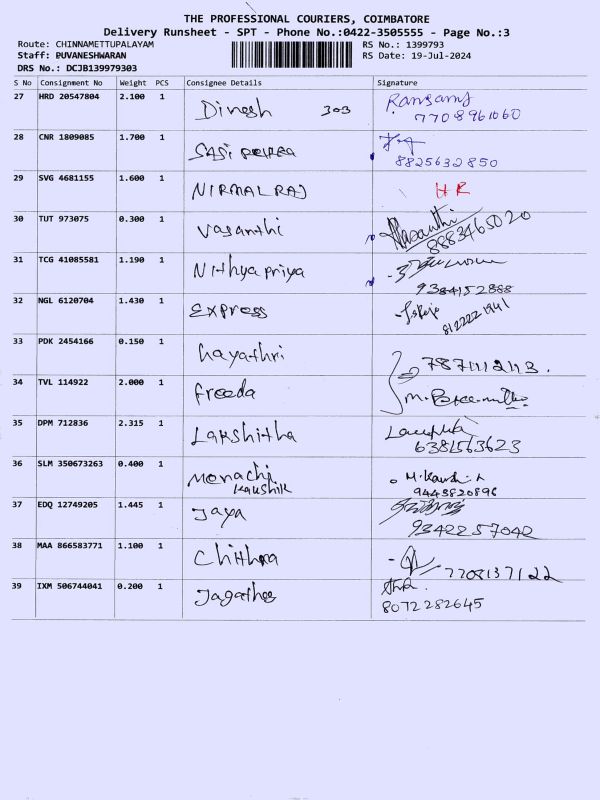 THE PROFESSIONAL COURIERS, COIMBATORE
Delivery Runsheet - SPT - Phone No.:0422-3505555 - Page No.:3
Route: CHINNAMETTUPALAYAM RS No.: 1399793
Staff: BUVANESHWARAN RS Date: 19-Jul-2024
DRS No.: DCJB139979303
S No Consignment No Weight PCS Consignee Details Signature
27 HRD 20547804 2.100 1 Dinesh 303
7708961060
28 CNR 1809085 1.700 1 Sasi
8825632850
29 SVG 4681155 1.600 1 NIRMALRAJ HR
30 TUT 973075 0.300 1 Vasanthi Vasanthi
8883465020
31 TCG 41085581 1.190 1 Nithyapriya
9384152888
32 NGL 6120704 1.430 1 Express
8122221941
33 PDK 2454166 0.150 1 Gayathri
34 TVL 114922 2.000 1 Freeda
35 DPM 712836 2.315 1 Lakshitha
6381563623
36 SLM 350673263 0.400 1 Monachi
Kaushik
9443820896
37 EDQ 12749205 1.445 1 Jaya
9342257042
38 MAA 866583771 1.100 1 Chithra
7708137122
39 IXM 506744041 0.200 1 Jagathes
8072282645